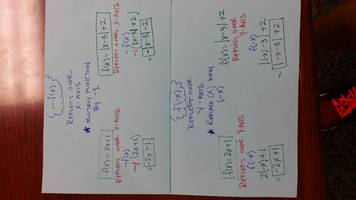 {-f(x)}
REFLECTS OVER
X-AXIS
★ MULTIPLY FUNCTION
BY -1
f(x) = 2x+1
REFLECT OVER X-AXIS
-f(x)
-1(2x+1)
-2x-1
f(x) = |x-3|+2
REFLECT OVER X-AXIS
-f(x)
-1(|x-3|+2)
-|x-3|-2
{f(-x)}
REFLECTS OVER
Y-AXIS
★ REPLACE X WITH
(-x)
f(x) = 2x+1
REFLECT OVER Y-AXIS
f(-x)
2(-x)+1
-2x+1
f(x) = |x-3|+2
REFLECT OVER
Y-AXIS
f(-x)
|(-x)-3|+2
|-x-3|+2